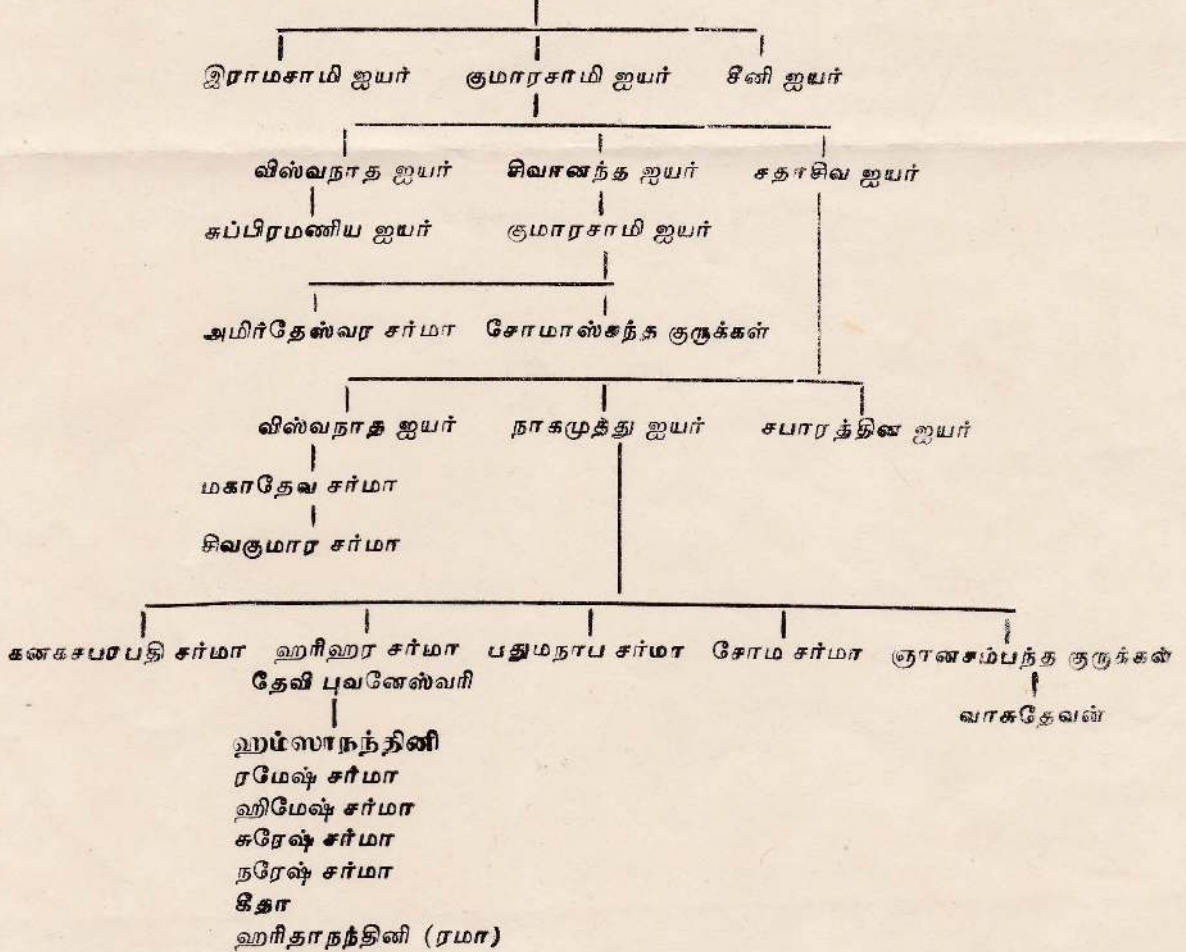 இராமசாமி ஐயர் குமாரசாமி ஐயர் சீனி ஐயர்
விஸ்வநாத ஐயர் சிவானந்த ஐயர் சதாசிவ ஐயர்
சுப்பிரமணிய ஐயர் குமாரசாமி ஐயர்
அமிர்தேஸ்வர சர்மா சோமாஸ்கந்த குருக்கள்
விஸ்வநாத ஐயர் நாகமுத்து ஐயர் சபாரத்தின ஐயர்
மகாதேவ சர்மா
சிவகுமார சர்மா
கனகசபாபதி சர்மா ஹரிஹர சர்மா பதுமநாப சர்மா சோம சர்மா ஞானசம்பந்த குருக்கள்
தேவி புவனேஸ்வரி
வாசுதேவன்
ஹம்ஸாநந்தினி
ரமேஷ் சர்மா
ஹிமேஷ் சர்மா
சுரேஷ் சர்மா
நரேஷ் சர்மா
கீதா
ஹரிதாநந்தினி (ரமா)